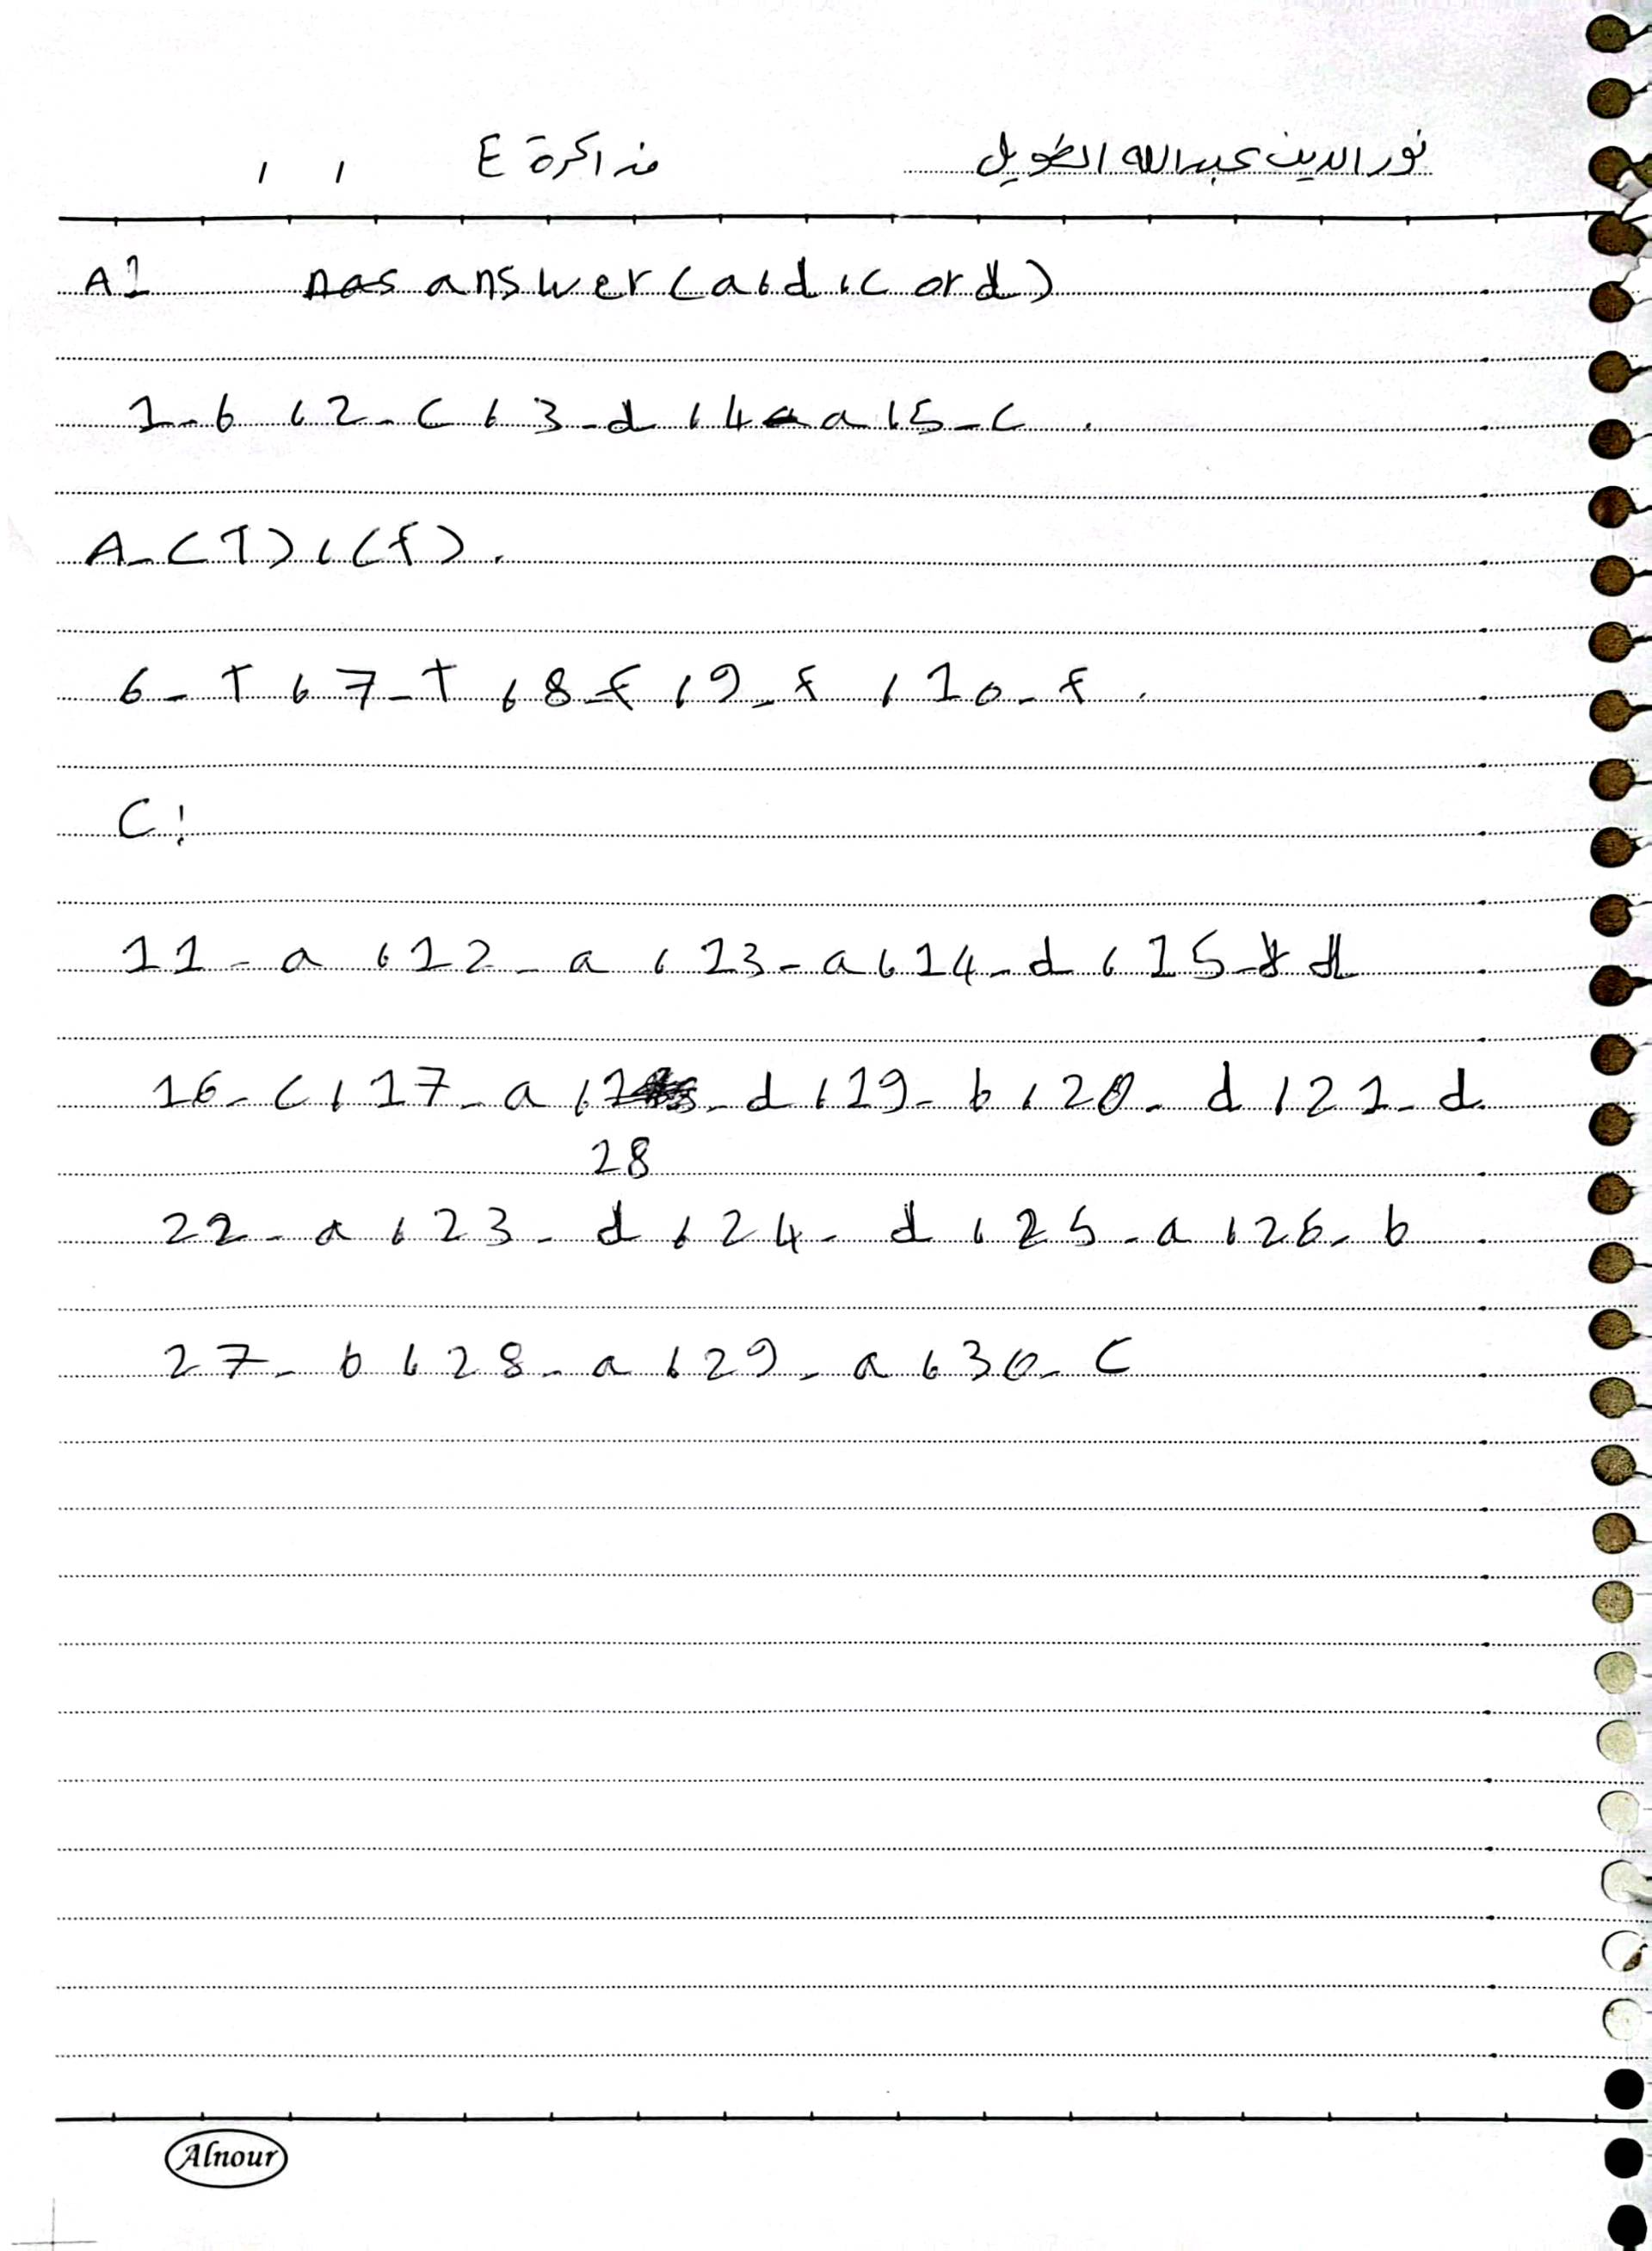 نور الدين عبدالله الطويل مذاكرة E / /
A: nas answer (a,d,c or d)
1-b , 2-c , 3-d , 4-a , 5-c .
A-(T),(f).
6-T , 7-T , 8-f , 9-f , 10-f .
C:
11-a , 12-a , 13-a , 14-d , 15-d
16-c , 17-a , -d , 19-b , 20-d , 21-d
28
22-a , 23-d , 24-d , 25-a , 26-b
27-b , 28-a , 29-a , 30-c
Alnour